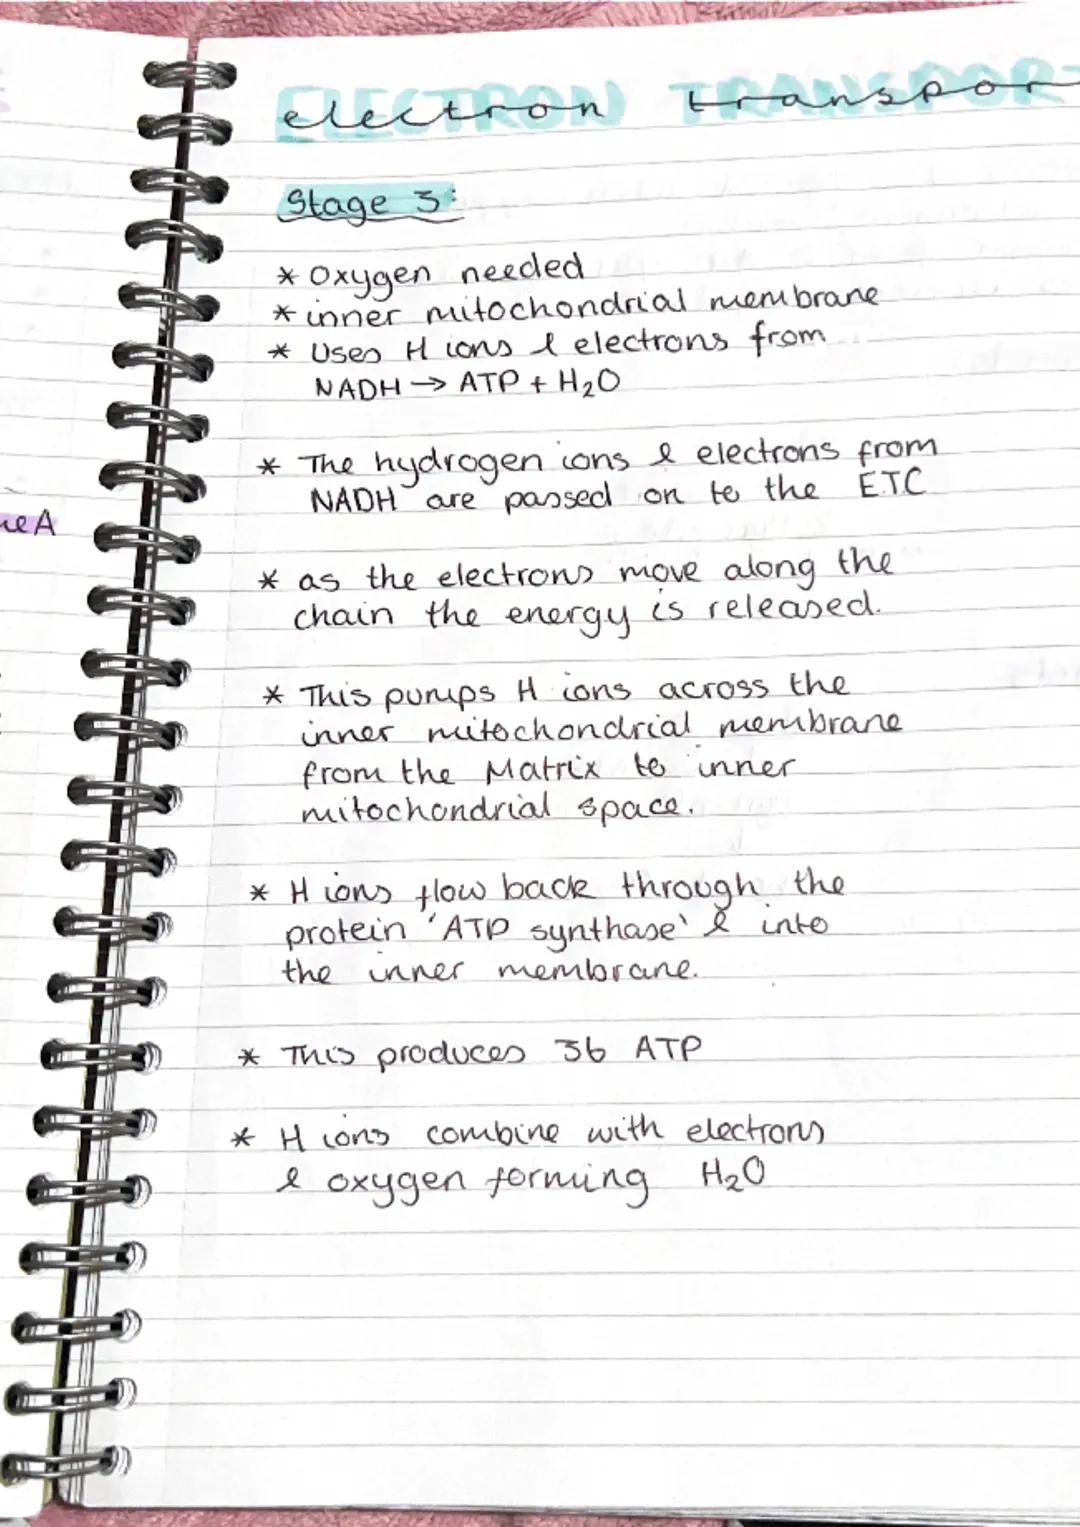 ELECTRON TRANSPORT
electron transpor
Stage 3:
* Oxygen needed
* inner mitochondrial membrane
* Uses H ions & electrons from
NADH → ATP + H₂O
* The hydrogen ions & electrons from
NADH are passed on to the ETC
neA
* as the electrons move along the
chain the energy is released.
* This pumps H ions across the
inner mitochondrial membrane
from the Matrix to inner
mitochondrial space.
* H ions flow back through the
protein 'ATP synthase' & into
the inner membrane.
* This produces 36 ATP
* H ions combine with electrons
& oxygen forming H₂O